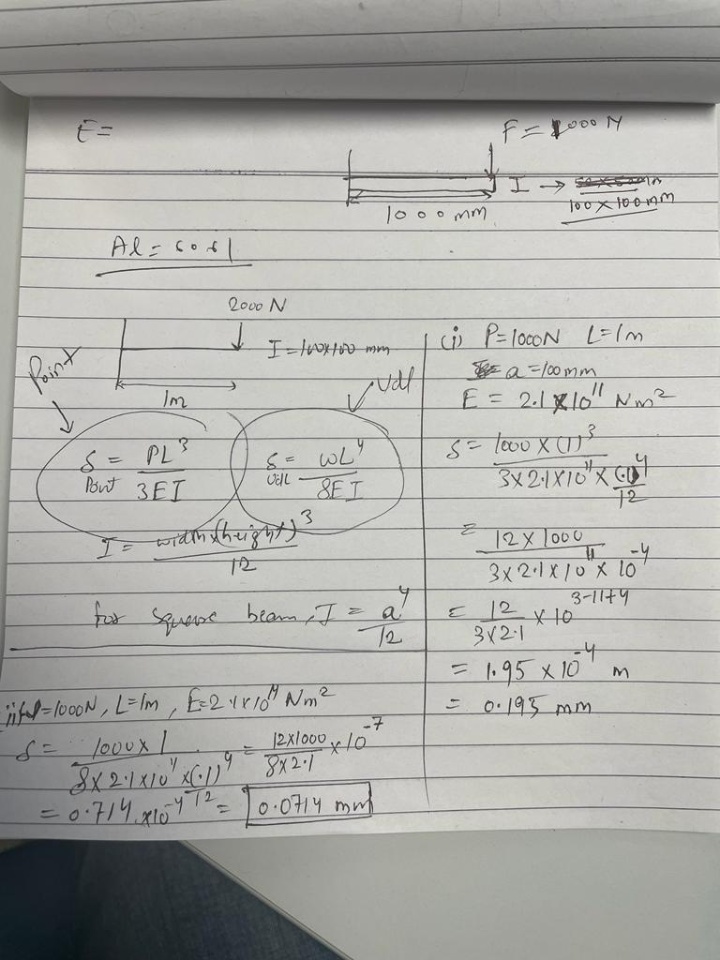 E =
F = 1000 N
I → 100 x 100 mm
1000 mm
Al = 6061
2000 N
I = 100x100 mm
1m
Point
Udl
δ Point = PL³ / 3EI
δ Udl = ωL⁴ / 8EI
I = width x (height)³ / 12
for square beam, I = a⁴ / 12
(i) P=1000N L=1m
a = 100mm
E = 2.1 x 10¹¹ Nm²
δ = 1000 x (1)³ / 3x2.1x10¹¹ x (.1)⁴/12
= 12 x 1000 / 3x2.1x10¹¹ x 10⁻⁴
= 12 / 3x2.1 x 10³⁻¹¹⁺⁴
= 1.95 x 10⁻⁴ m
= 0.195 mm
=1000N, L=1m, E=2.1x10¹¹ Nm²
δ = 1000 x 1 / 8x2.1x10¹¹ x (.1)⁴/12 = 12x1000 / 8x2.1 x 10⁻⁷
= 0.714 x10⁻⁴ = 0.0714 mm